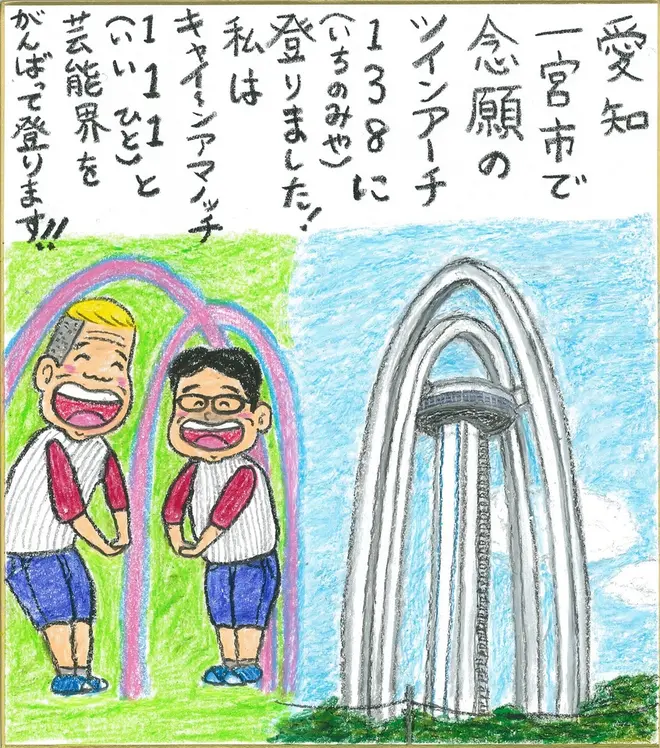 愛知
一宮市で
念願の
ツインアーチ
138に
(いちのみや)
登りました!
私は
キャイ〜ンアマノッチ
111と
(いい ひと)
芸能界を
がんばって登ります!!